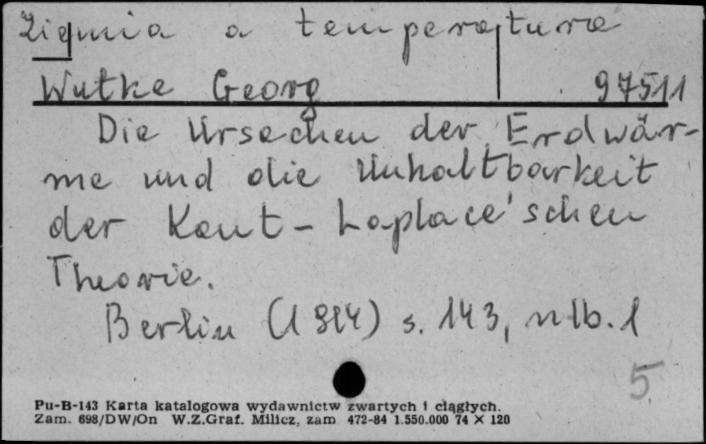 Ziemia a temperatura
Wutke Georg 97511
Die Ursachen der Erdwär-
me und die Unhaltbarkeit
der Kant-Laplace'schen
Theorie.
Berlin (1914) s. 143, nlb. 1
5
Pu-B-143 Karta katalogowa wydawnictw zwartych i ciągłych.
Zam. 698/DW/On W.Z.Graf. Milicz, zam 472-84 1.550.000 74 × 120